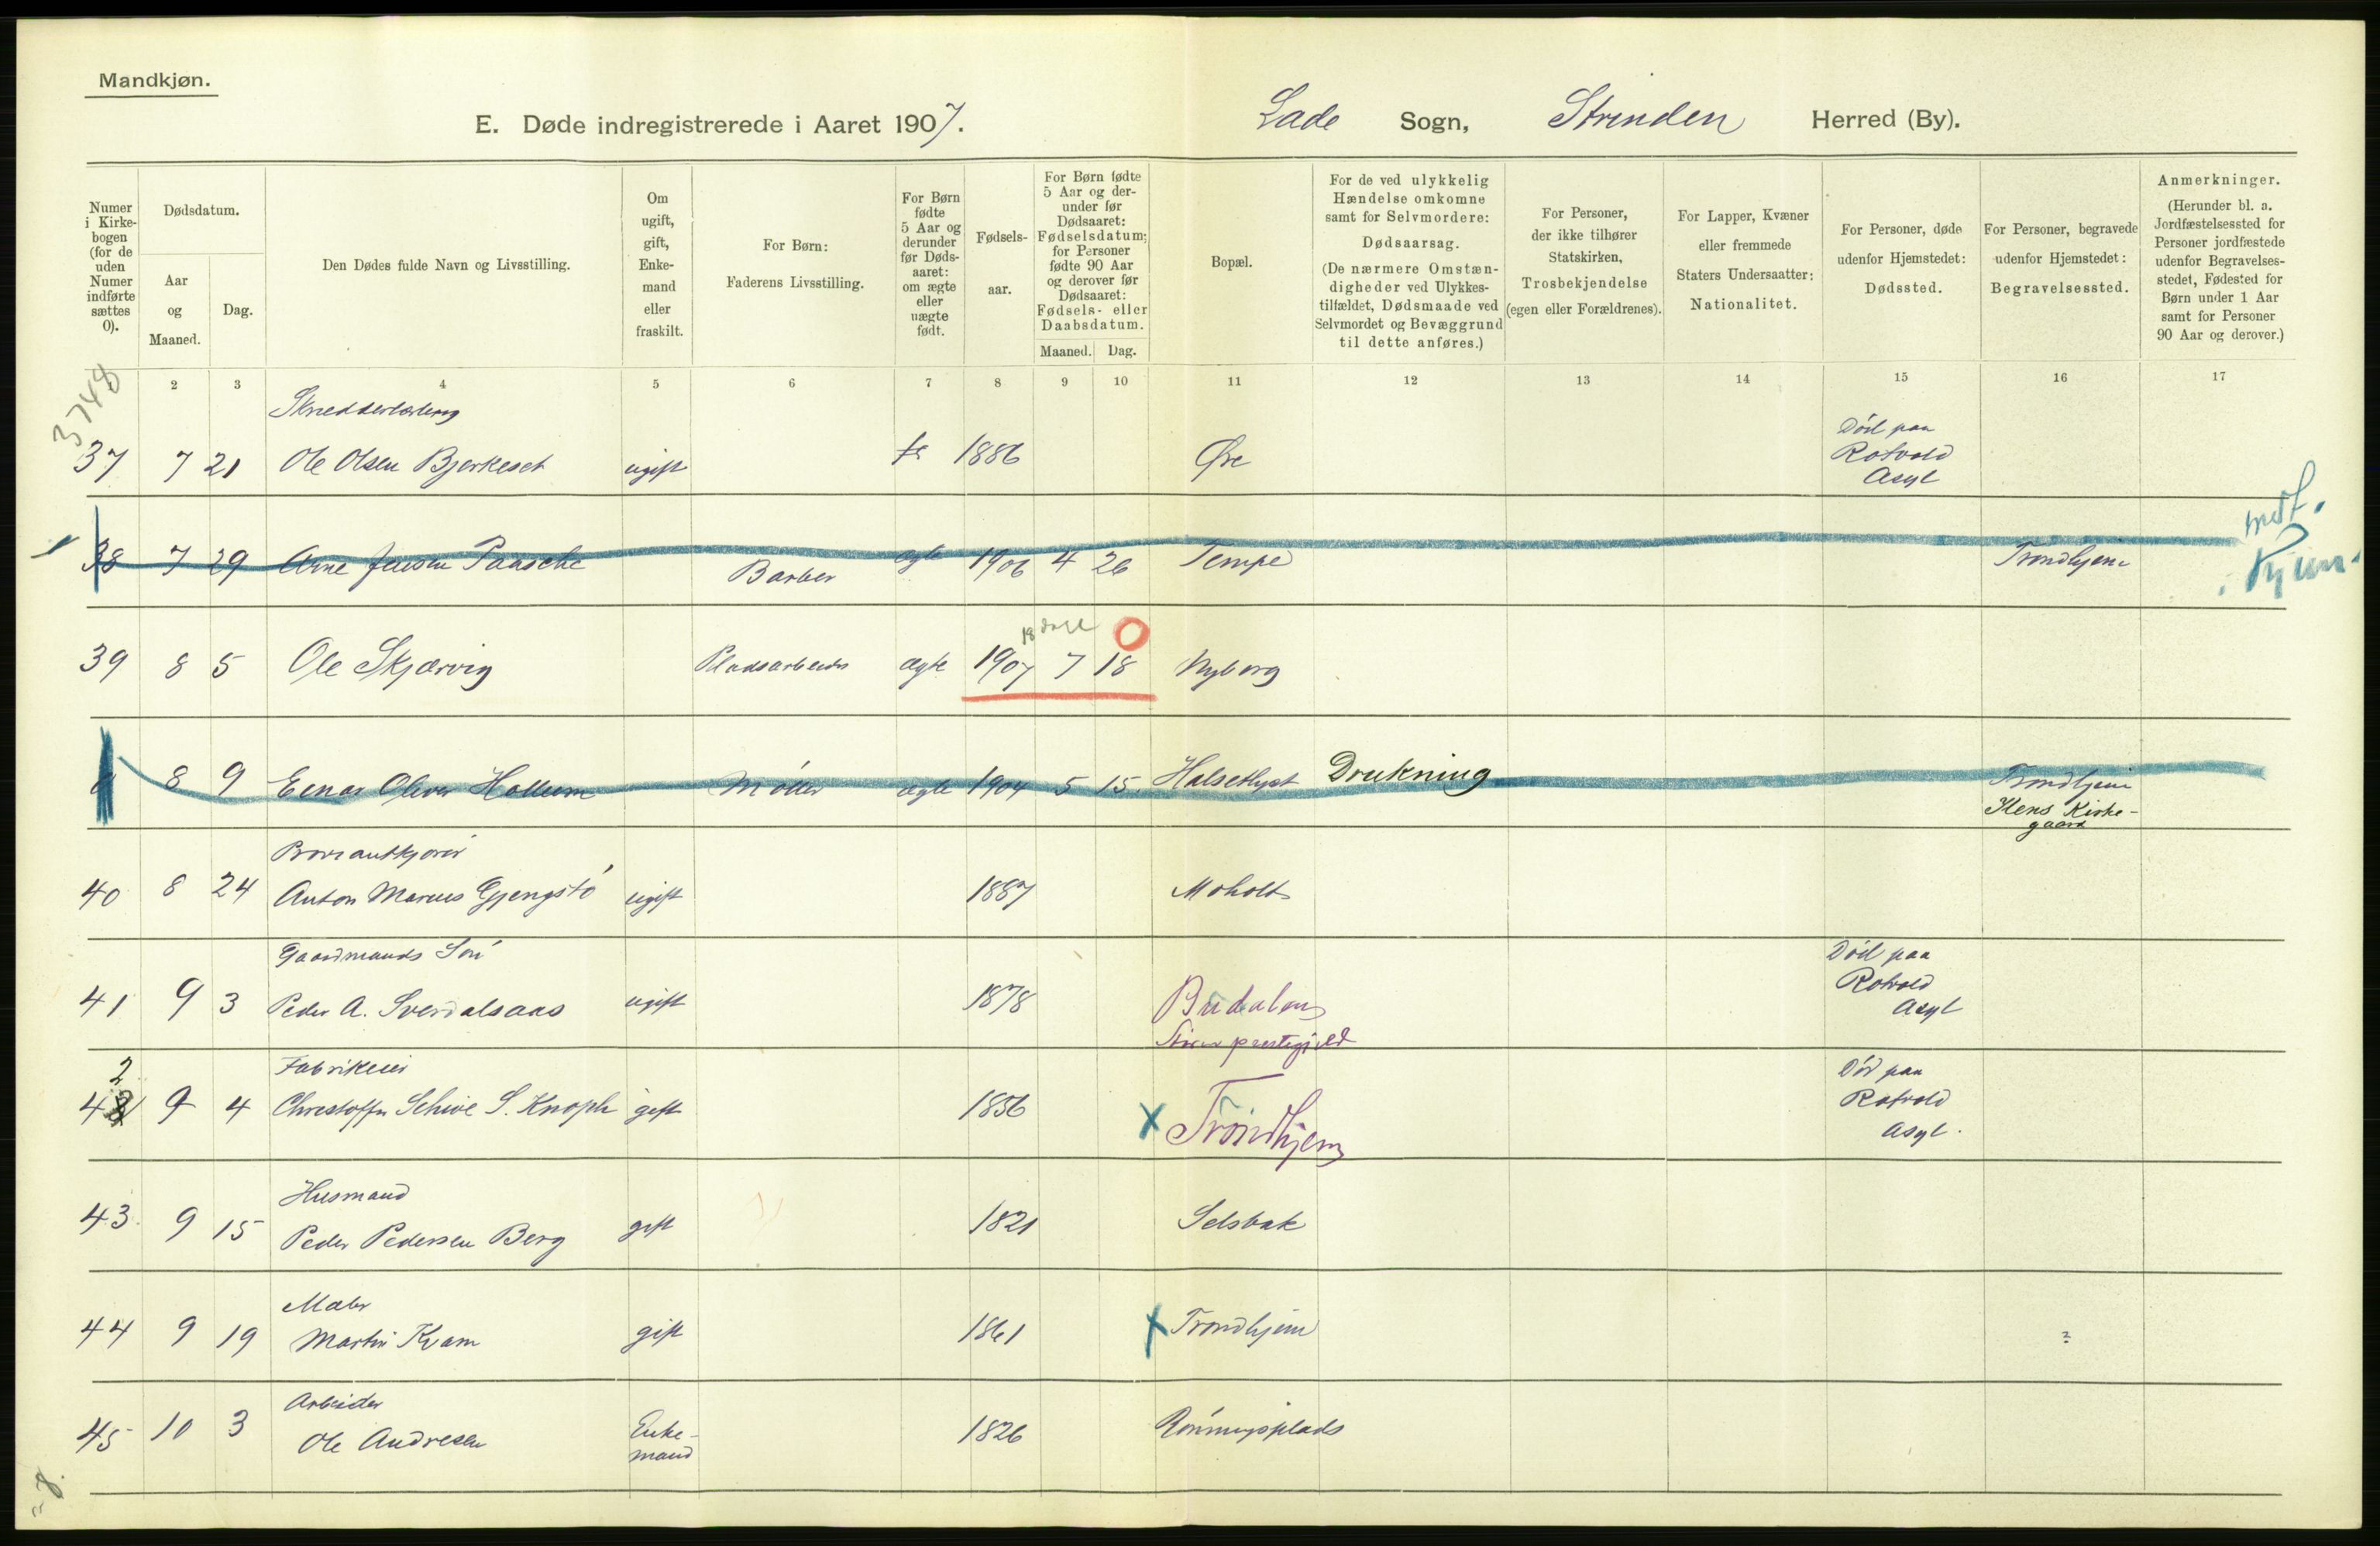 Mandkjøn.
E. Døde indregistrerede i Aaret 1907.
Lade Sogn, Strinden Herred (By).
Numer i Kirke-bogen (for de uden Numer indførte sættes 0).
Dødsdatum.
Aar og Maaned.
Dag.
Den Dødes fulde Navn og Livsstilling.
Om ugift, gift, Enke-mand eller fraskilt.
For Børn: Faderens Livsstilling.
For Børn fødte 5 Aar og derunder før Døds-aaret: om ægte eller uægte født.
Fødsels-aar.
For Børn fødte 5 Aar og der-under før Dødsaaret: Fødselsdatum; for Personer fødte 90 Aar og derover før Dødsaaret: Fødsels- eller Daabsdatum.
Maaned. Dag.
Bopæl.
For de ved ulykkelig Hændelse omkomne samt for Selvmordere: Dødsaarsag. (De nærmere Omstæn-digheder ved Ulykkes-tilfældet, Dødsmaade ved Selvmordet og Bevæggrund til dette anføres.)
For Personer, der ikke tilhører Statskirken, Trosbekjendelse (egen eller Forældrenes).
For Lapper, Kvæner eller fremmede Staters Undersaatter: Nationalitet.
For Personer, døde udenfor Hjemstedet: Dødssted.
For Personer, begravede udenfor Hjemstedet: Begravelsessted.
Anmerkninger. (Herunder bl. a. Jordfæstelsessted for Personer jordfæstede udenfor Begravelses-stedet, Fødested for Børn under 1 Aar samt for Personer 90 Aar og derover.)
3748
2 3 4 5 6 7 8 9 10 11 12 13 14 15 16 17
Skrædderlærling
37 7 21 Ole Olsen Bjerkeset ugift 1886 Øre Död paa
Rotvold
Asyl
38 7 29 Arne Jensen Paasche Barber ægte 1906 4 26 Tempe Trondhjem
18 dage 0
39 8 5 Ole Skjærvig Pladsarbeider ægte 1907 7 18 Nyborg
0 8 9 Einar Oliver Hollum Möller ægte 1904 5 15 Halsetlyst Drukning Trondhjem
Ilens Kirke-
gaard
Proviantkjörer
40 8 24 Anton Marius Gjengstö ugift 1887 Moholt
Gaardmands Sön
41 9 3 Peder A. Sverdalsaas ugift 1878 Budalen
Stören prestegjeld
Död paa
Rotvold
Asyl
Fabrikeier
42 9 4 Christoffer Schive S. Knoph gift 1856 X Trondhjem
Död paa
Rotvold
Asyl.
Husmand
43 9 15 Peder Pedersen Berg gift 1821 Selsbak
Maler
44 9 19 Martin Kvam gift 1861 X Trondhjem ?
Arbeider
45 10 3 Ole Andresen Enke-
mand
1826 Rönningsplads